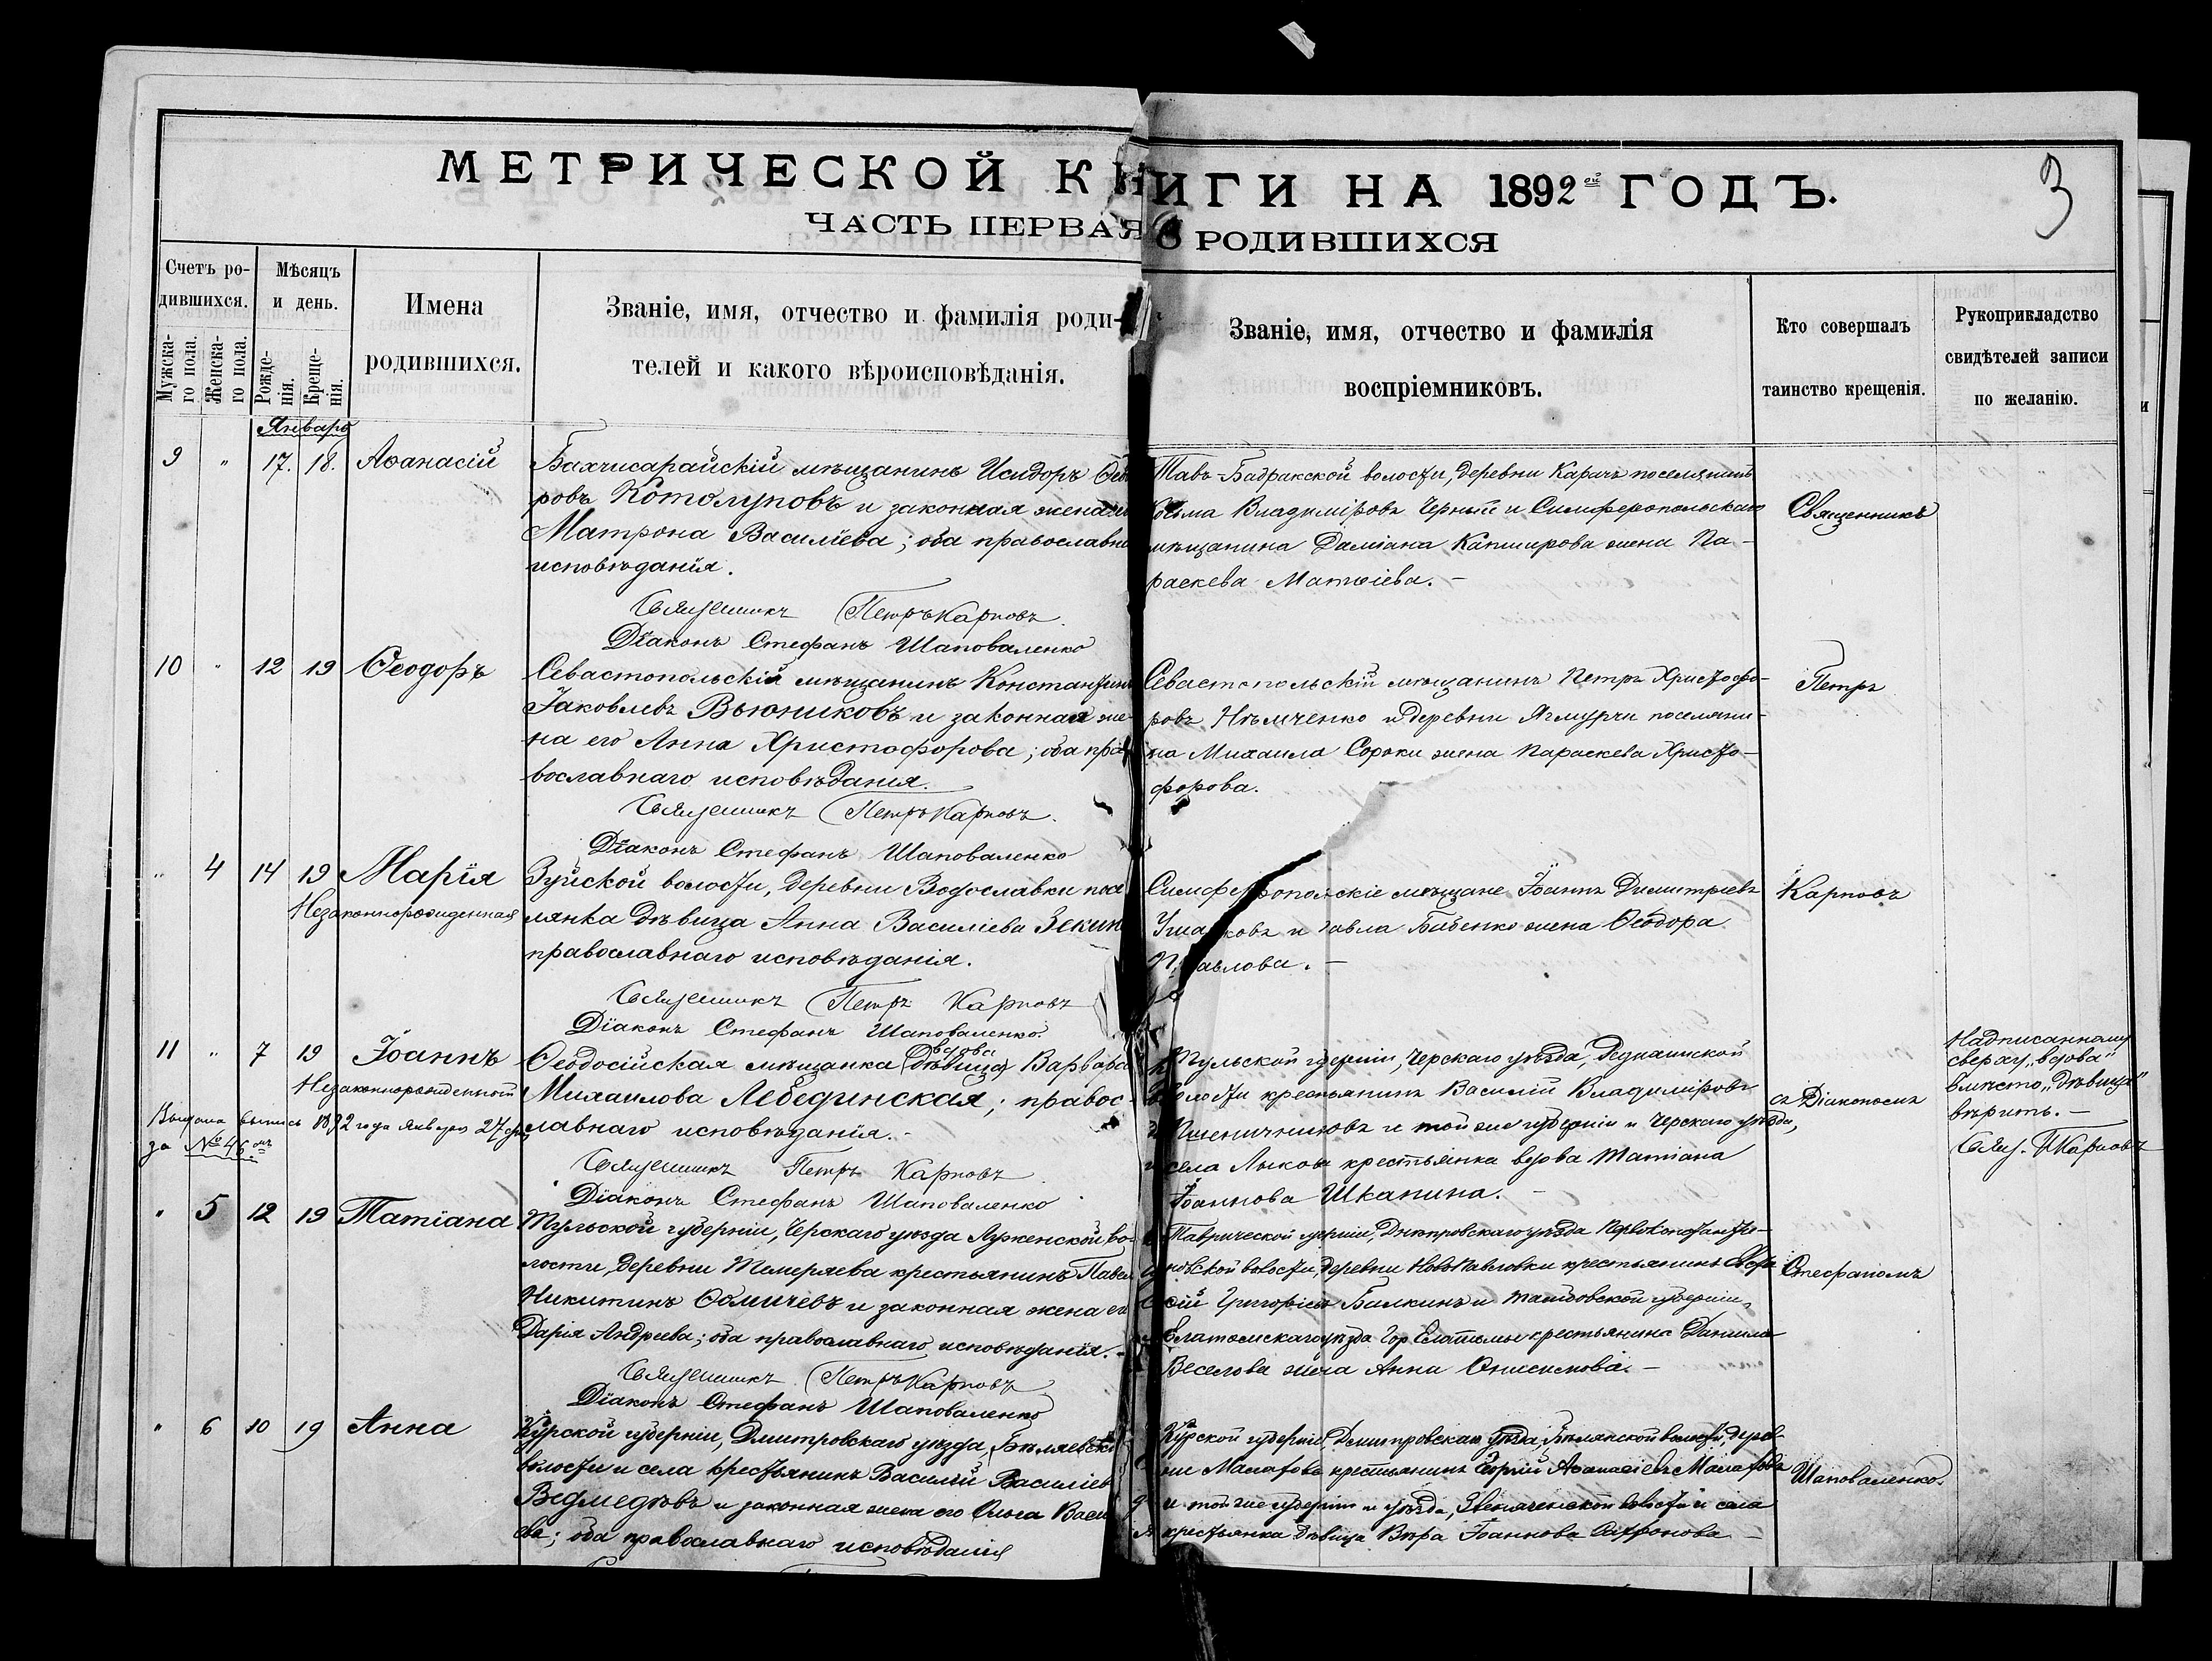 МЕТРИЧЕСКОЙ КНИГИ НА 1892ой ГОДЪ.
3
ЧАСТЬ ПЕРВАЯ О РОДИВШИХСЯ
Счетъ ро-
дившихся.
Мужска-
го пола.
Женска-
го пола.
Мѣсяцъ
и день.
Рожде-
нія.
Креще-
нія.
Имена
родившихся.
Званіе, имя, отчество и фамилія роди-
телей и какого вѣроисповѣданія.
Званіе, имя, отчество и фамилія
воспріемниковъ.
Кто совершалъ
таинство крещенія.
Рукоприкладство
свидѣтелей записи
по желанію.
Январь
9 " 17. 18. Аѳанасій
Бахчисарайскій мѣщанинъ Исидоръ
ровъ Котолуповъ и законная жена
Матрона Василіева; оба православн
исповѣданія.
Священникъ Петръ Карповъ.
Діаконъ Стефанъ Шаповаленко
Тавъ-Бадракской волости, деревни Карачъ поселянинъ
Козьма Владиміровъ Черный и Симферопольскаго
мѣщанина Даміана Капширова жена Па-
раскева Матѳіева. -
Священникъ
10 " 12 19 Ѳеодоръ
Севастопольскій мѣщанинъ Константинъ
Іаковлевъ Вьюниковъ и законная же-
на его Анна Христофорова; оба пра-
вославнаго исповѣданія.
Священникъ Петръ Карповъ.
Діаконъ Стефанъ Шаповаленко
Севастопольскій мѣщанинъ Петръ Христофо-
ровъ Нѣмченко и деревни Ягмурчи поселяни-
на Михаила Сороки жена Параскева Христо-
форова.
Петръ
" 4 14 19 Марія
Незаконнорожденная
Зуйской волости, деревни Водославки посе
лянка дѣвица Анна Василіева Зекин
православнаго исповѣданія.
Священникъ Петръ Карповъ
Діаконъ Стефанъ Шаповаленко.
Симферопольскіе мѣщане Іоаннъ Димитріевъ
и Павла Бабенко жена Ѳеодора
Павлова. -
Карповъ
11 " 7 19 Іоаннъ
Незаконнорожденный
Выдана выпись 1892 года Января 27 дня
за № 46
вдова
Ѳеодосійская мѣщанка (дѣвица) Варвара
Михаилова Лебединская; правос-
лавнаго исповѣданія. -
Священникъ Петръ Карповъ
Діаконъ Стефанъ Шаповаленко
Тульской губерніи, Черскаго уѣзда,
волости крестьянинъ Василій Владиміровъ
Пшеничниковъ и той же губерніи и Черскаго уѣзда,
села Лыкова крестьянка вдова Татіана
Іоаннова Шканина. -
съ Діакономъ
Надписанному
сверху „вдова"
вмѣсто „дѣвица"
вѣрить. -
Свящ. П Карповъ
" 5 12 19 Татіана
Тульской губерніи, Черскаго уѣзда Луженской во-
лости, деревни Темеряева крестьянинъ Павелъ
Никитинъ Ѳомичевъ и законная жена ег
Дарія Андреева; оба православнаго исповѣданія. -
Священникъ Петръ Карповъ
Діаконъ Стефанъ Шаповаленко
Таврической губерніи, Днѣпровскаго уѣзда Первоконстанти-
новской волости, деревни Новопавловки крестьянинъ
Григорьевъ Балкинъ и Тамбовской губерніи,
Елатомскаго уѣзда гор. Елатьмы крестьянина Даніила
Веселова жена Анна Онисимова. -
Стефаномъ
" 6 10 19 Анна
Курской губерніи, Дмитровскаго уѣзда, Бѣляевской
волости и села крестьянинъ Василій Василіев
Ведмедевъ и законная жена его Ольга Васи
ева; оба православнаго исповѣданія
Курской губерніи, Дмитровскаго уѣзда, Бѣлянской волости, дерев-
ни Малахова крестьянинъ Георгій Аѳанасіевъ Малаховъ
и той же губерніи и уѣзда, волости и села
крестьянка дѣвица Вѣра Іоаннова Сафронова -
Шаповаленко.